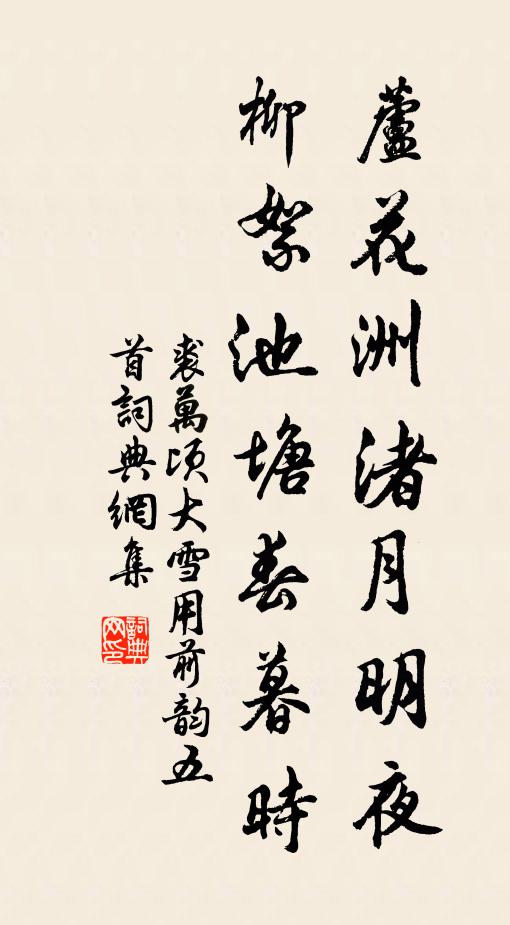 蘆花洲渚月明夜
柳絮池塘春暮時
裘萬頃大雪用前韵五
首詞典網集
詞典
网印